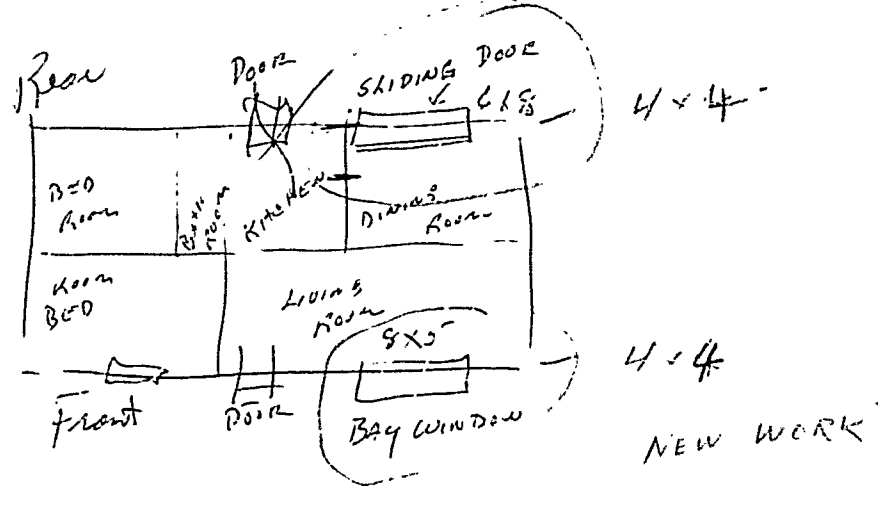 Rear
DOOR
SLIDING DOOR
6x8
4 x 4
BED
Room
BATH
ROOM
KITCHEN
DINING
ROOM
ROOM
BED
LIVING
ROOM
8x5
4 x 4
Front
DOOR
BAY WINDOW
NEW WORK